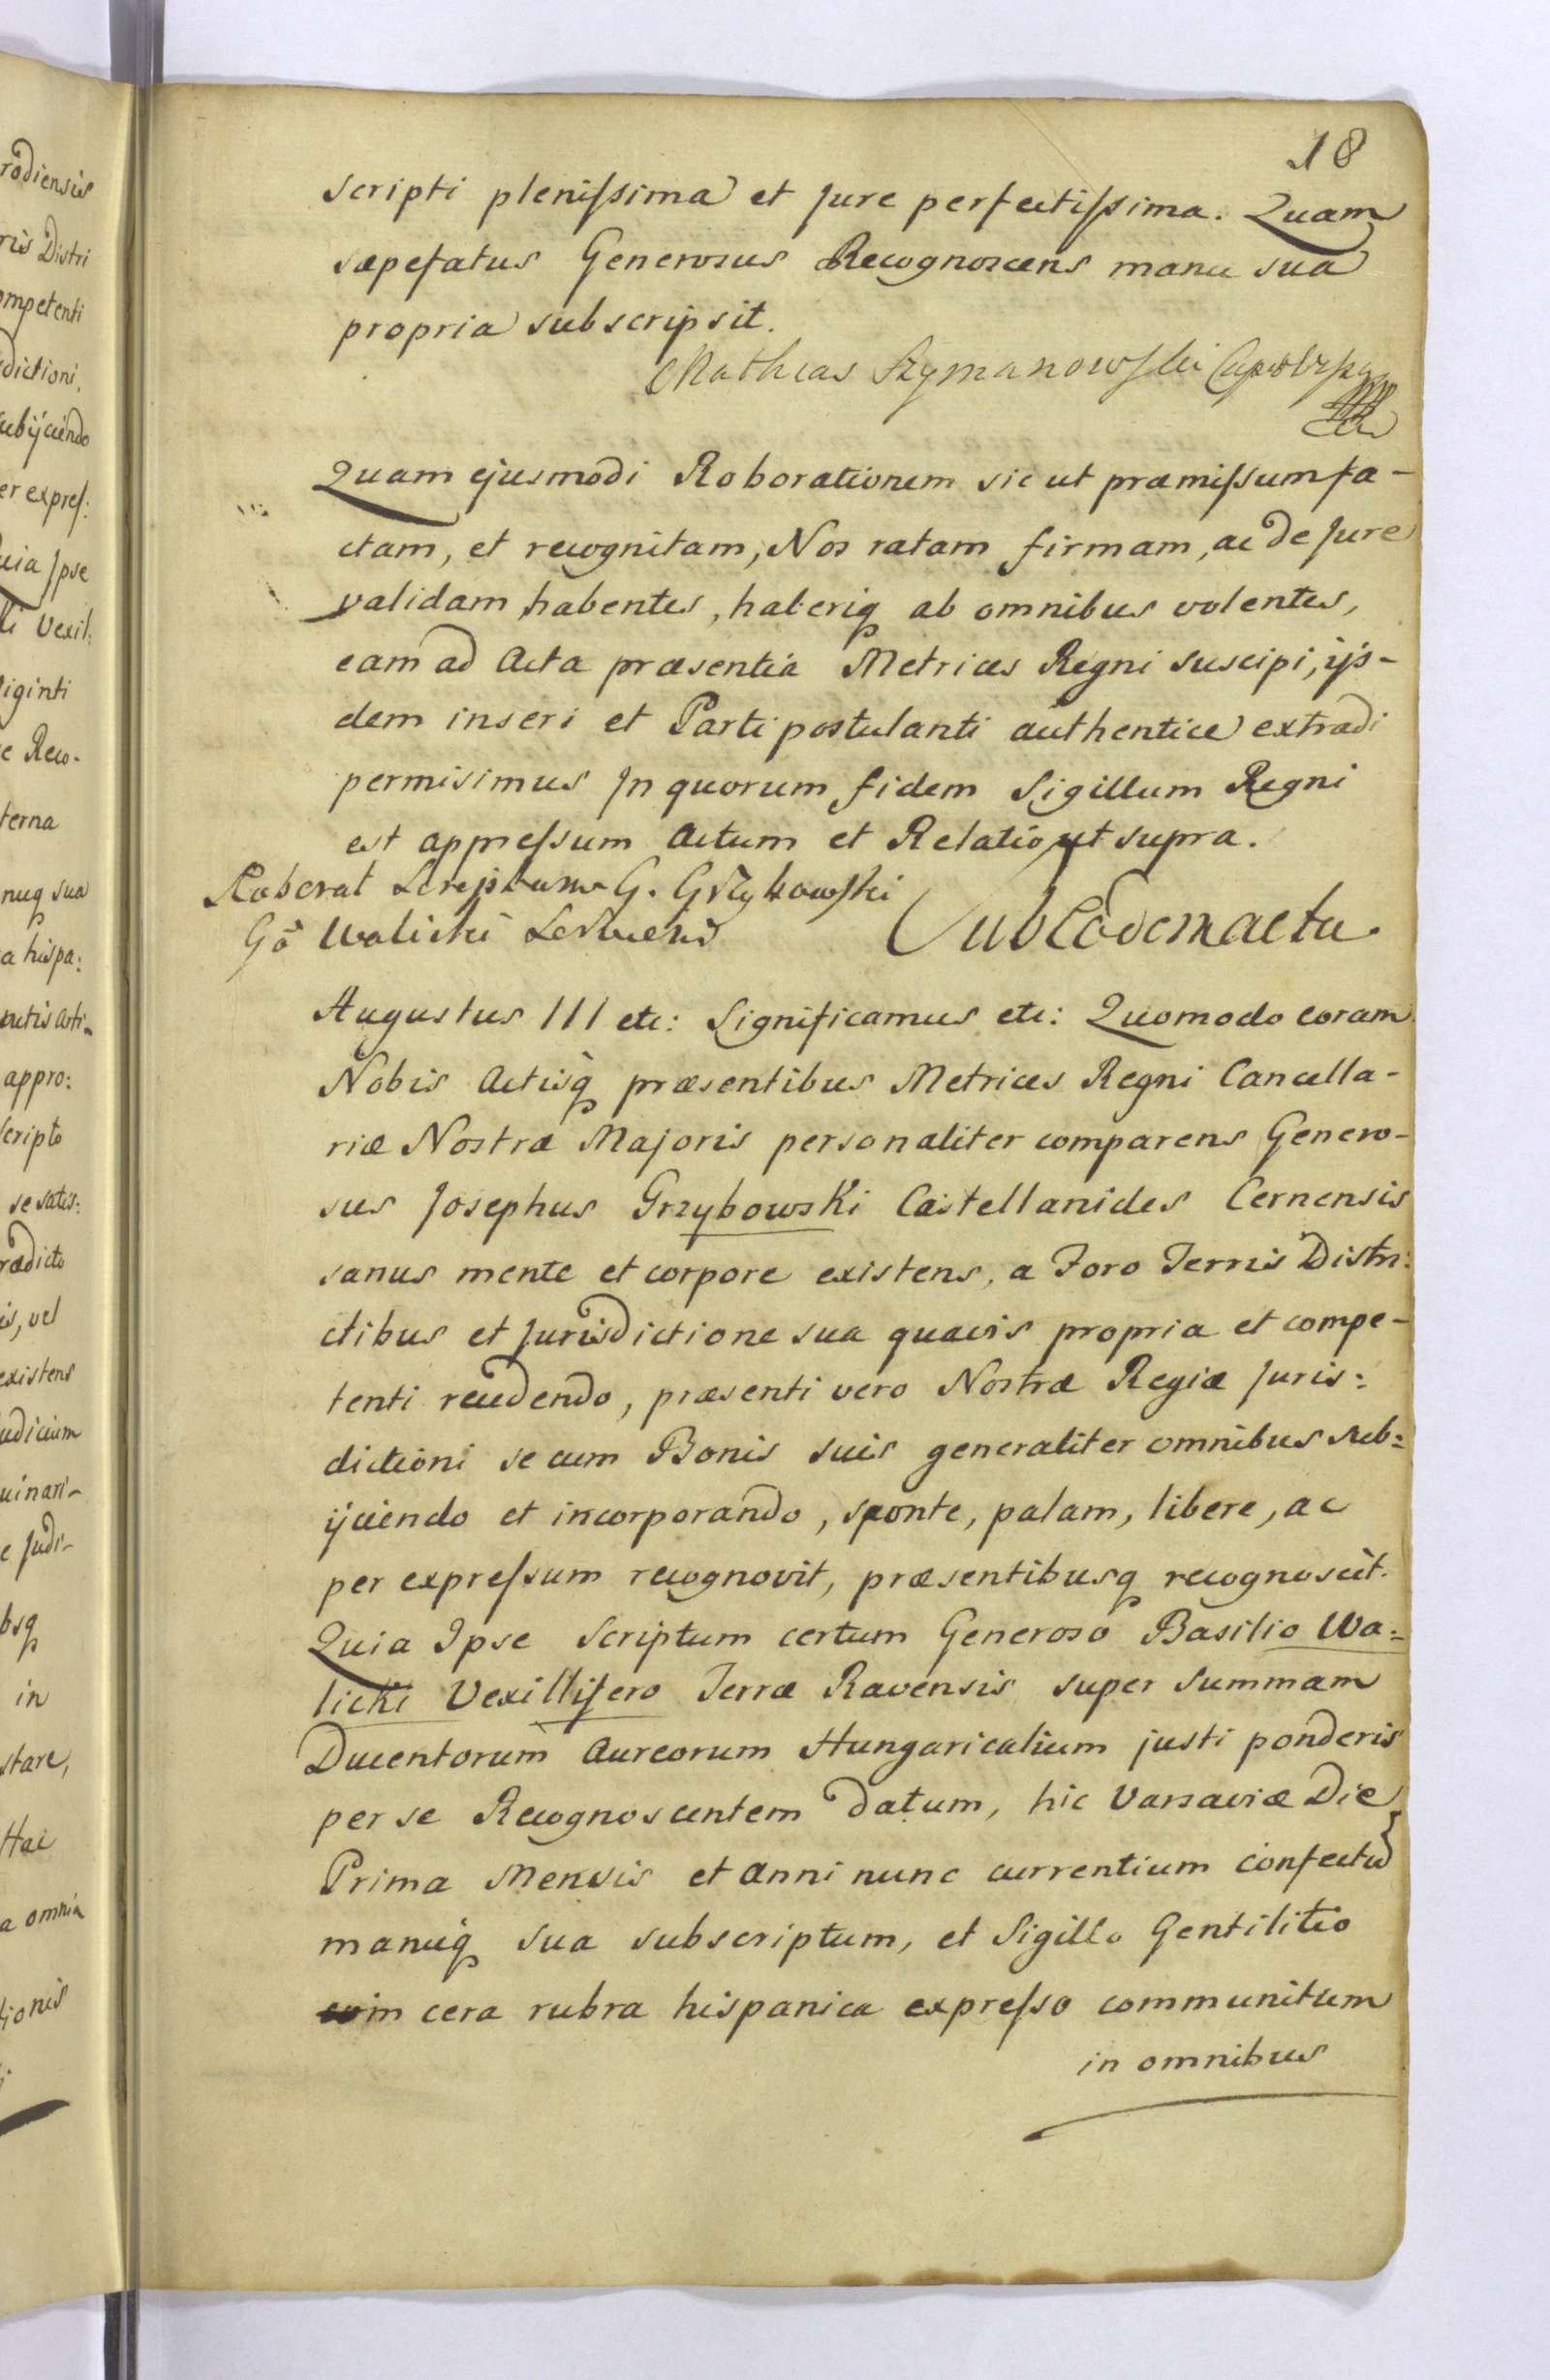 18
scripti plenissima et Jure perfectissima. Quam
sæpefatus Generosus Recognoscens manu sua
propria subscripsit.
Mathias Szymanowski
Quam ejusmodi Roborationem sic ut præmissum fa-
ctam, et recognitam, Nos ratam firmam, ac de Jure
validam habentes, haberiq ab omnibus volentes,
eam ad Acta præsentia Metrices Regni suscipi, ijs-
dem inseri et Parti postulanti authentice extradi
permisimus Jn quorum fidem Sigillum Regni
est appressum Actum et Relatio ut supra.
Roborat Scriptum G. Grzybowski
Gō Walicki
Sub Eodem actu
Augustus III etc: Significamus etc: Quomodo coram
Nobis Actisq præsentibus Metrices Regni Cancella-
riæ Nostræ Majoris personaliter comparens Genero-
sus Josephus Grzybowski Castellanides Cernensis
sanus mente et corpore existens, a Foro Terris Distri:
ctibus et Jurisdictione sua quavis propria et compe-
tenti recedendo, præsenti vero Nostræ Regiæ Juris:
dictioni se cum Bonis suis generaliter omnibus sub:
ijciendo et incorporando, sponte, palam, libere, ac
per expressum recognovit, præsentibusq recognoscit.
Quia Ipse Scriptum certum Generoso Basilio Wa:
licki Vexillifero Terræ Ravensis super Summam
Ducentorum Aureorum Hungaricalium justi ponderis
per se Recognoscentem datum, hic Varsaviæ Die
Prima Mensis et Anni nunc currentium confectū
manuq sua subscriptum, et Sigillo Gentilitio
in cera rubra hispanica expresso communitum
in omnibus